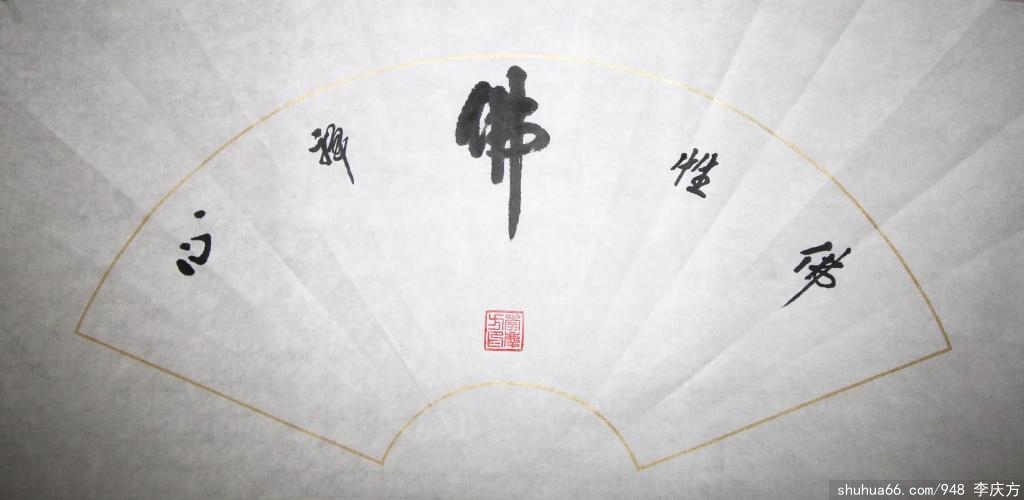 佛性佛禅心
李慶方印
shuhua66.com/948 李庆方